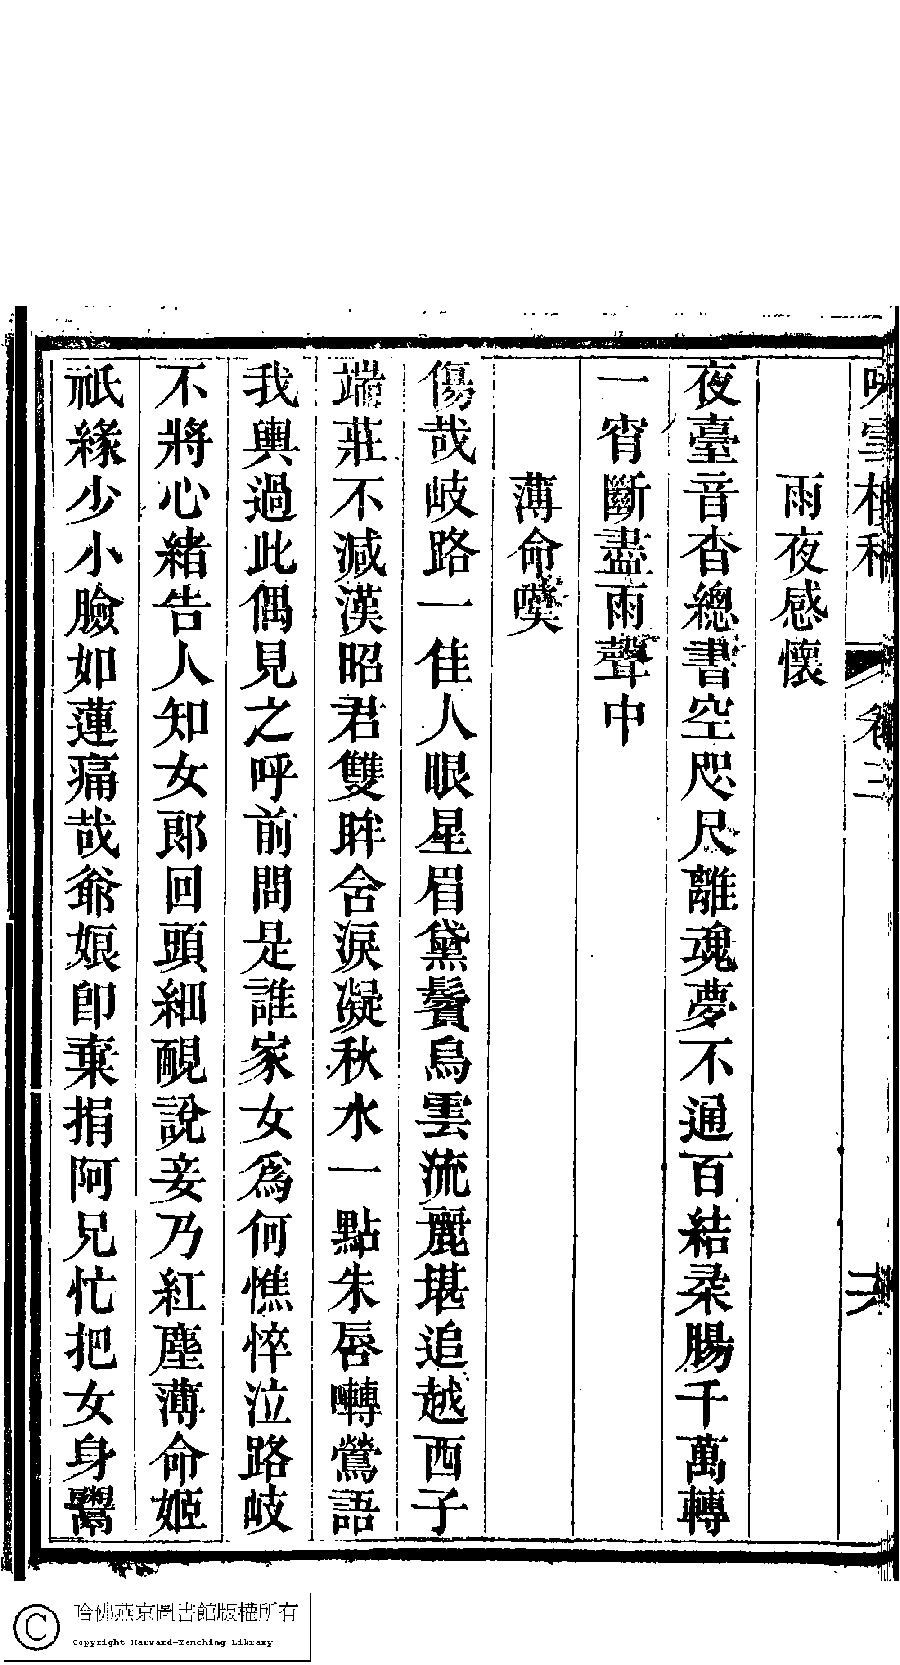 雨夜感懷
夜臺音杳總書空咫尺離魂夢不通百結柔腸千萬轉
一宵斷盡雨聲中
薄命嘆
傷哉岐路一佳人眼星眉黛鬢烏雲流麗堪追越西子
端莊不減漢昭君雙眸含淚凝秋水一點朱唇囀鶯語
我輿過此偶見之呼前問是誰家女為何憔悴泣路岐
不將心緒告人知女郎回頭細覗說妾乃紅塵薄命姬
祇緣少小臉如蓮痛哉爺娘卽棄捐阿兄忙把女身鬻
卷三
哈佛燕京圖書館版權所有
Copyright Harvard-Yenching Library